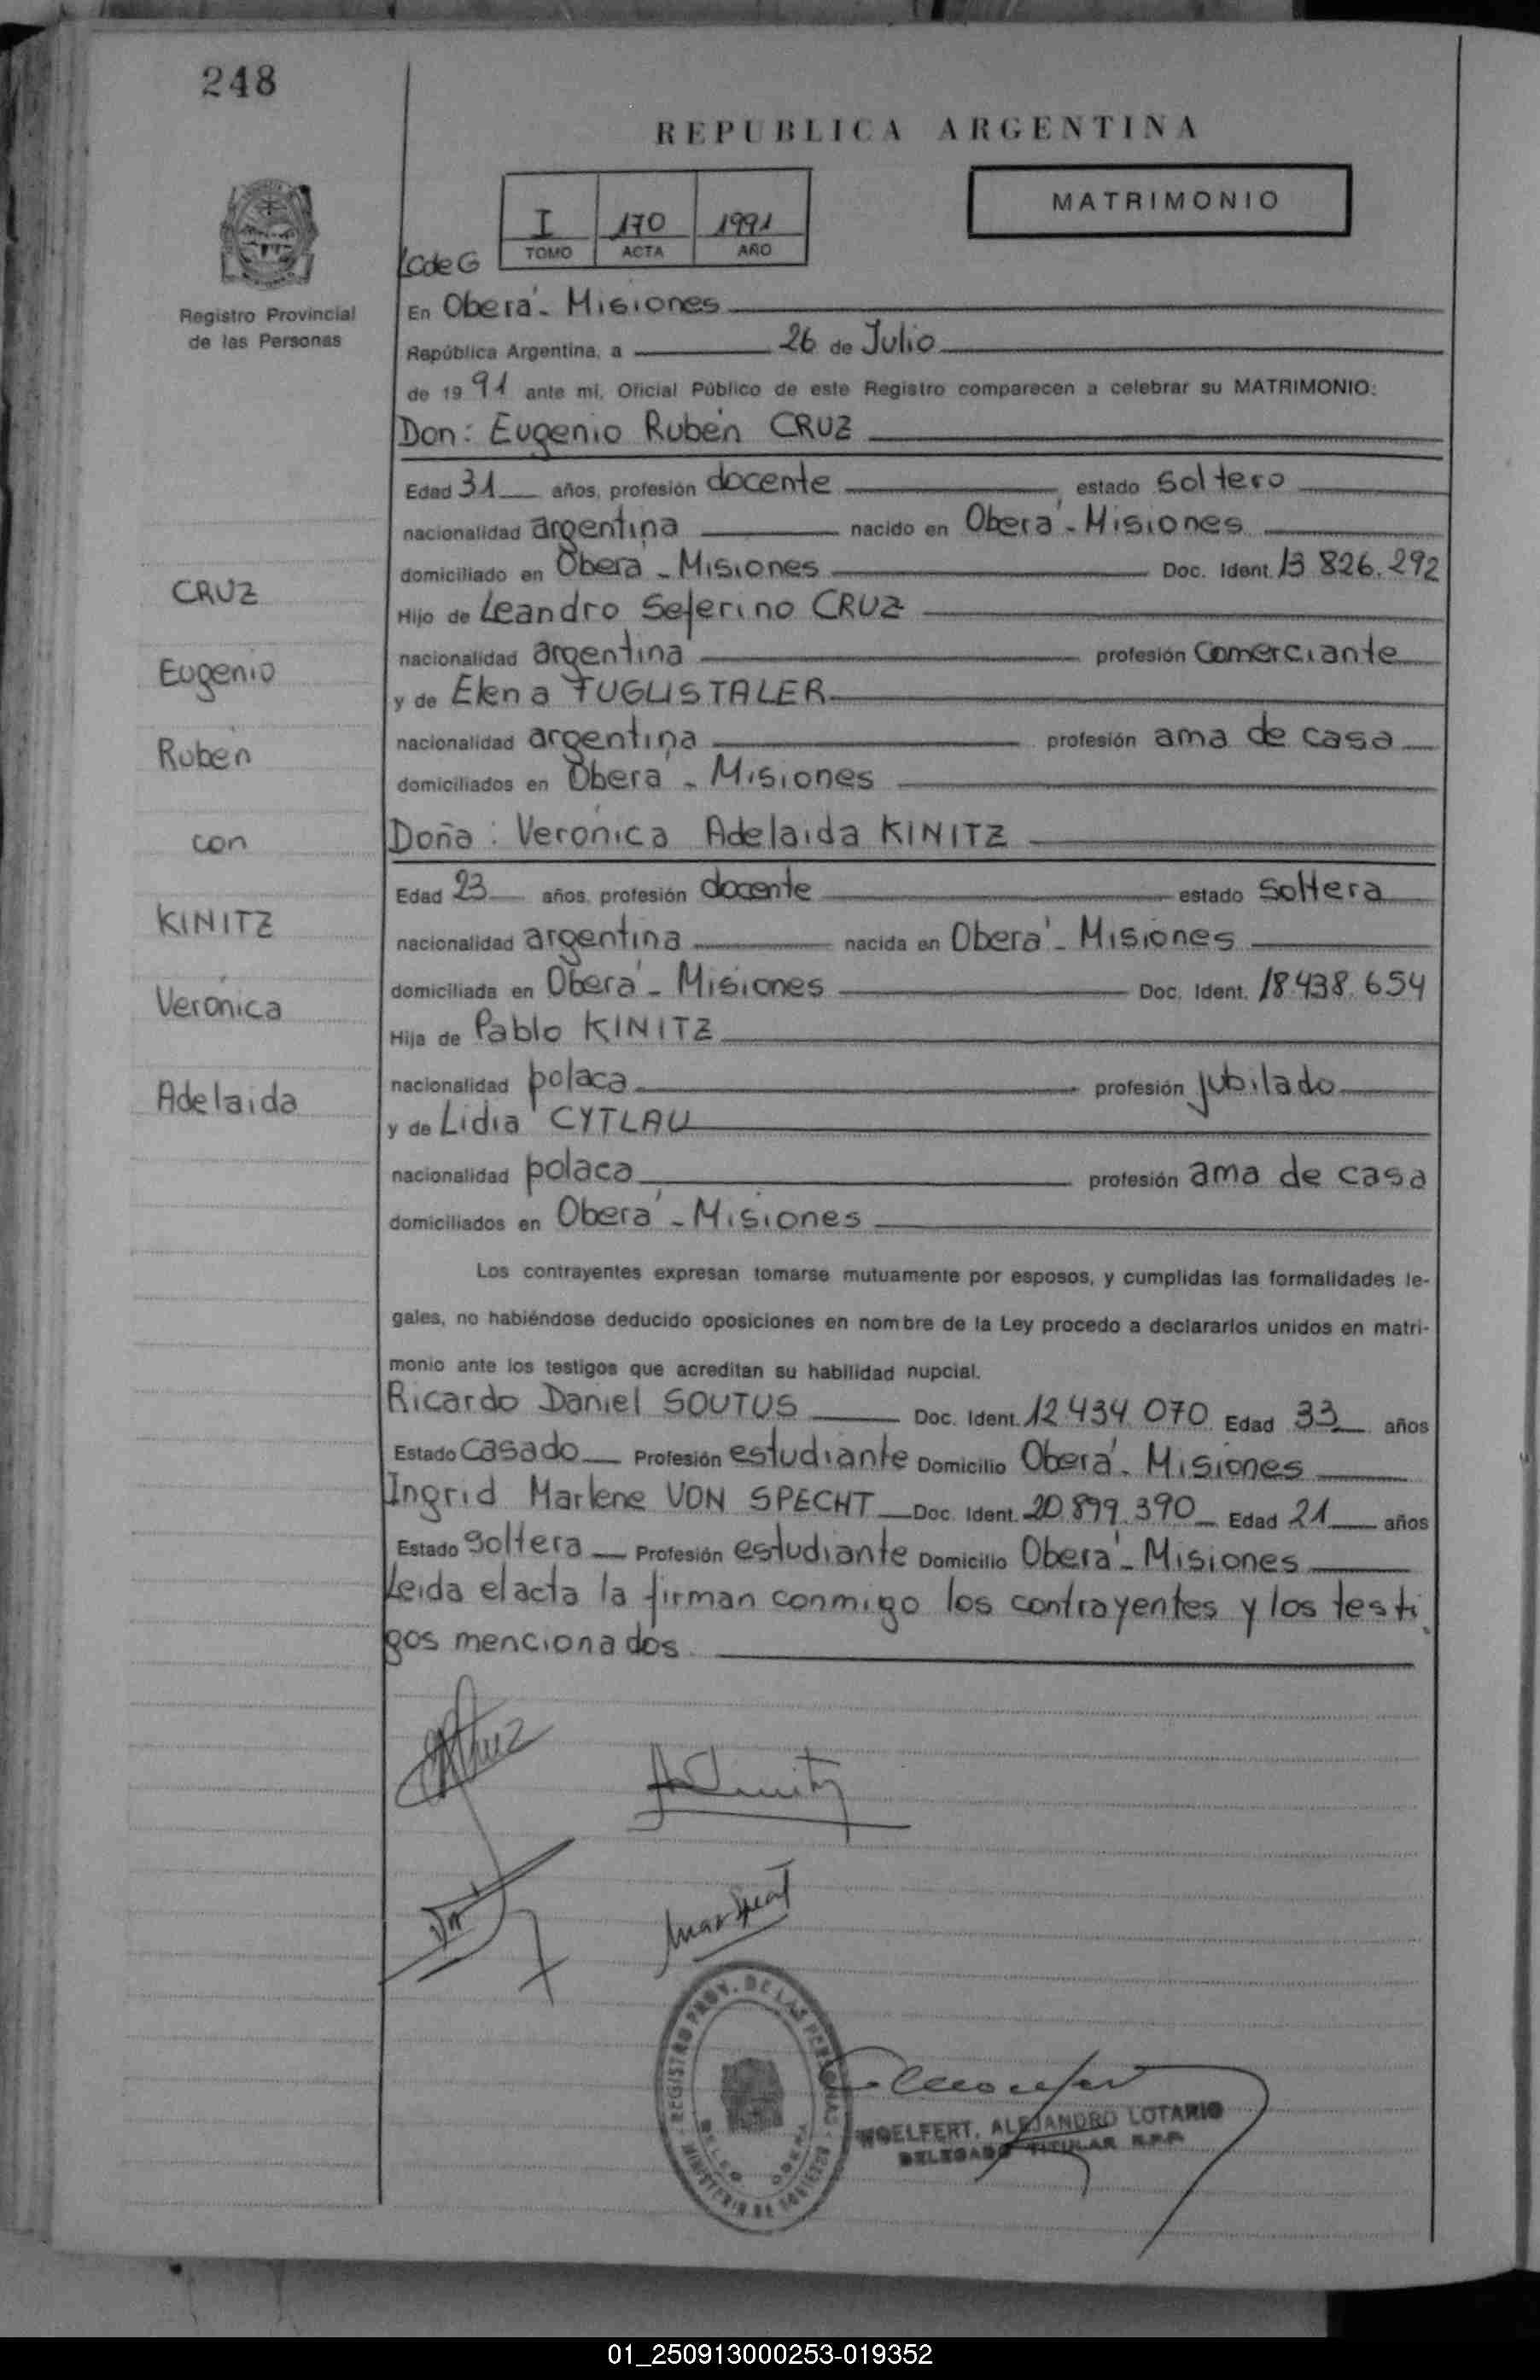 248
REPUBLICA ARGENTINA
MATRIMONIO
I 170 1991
TOMO ACTA AÑO
LCdeG
Registro Provincial
de las Personas
En Oberá - Misiones
República Argentina, a 26 de Julio
de 1991 ante mi, Oficial Público de este Registro comparecen a celebrar su MATRIMONIO:
Don: Eugenio Rubén CRUZ
Edad 31 años, profesión docente estado soltero
nacionalidad argentina nacido en Oberá - Misiones
domiciliado en Oberá - Misiones Doc. Ident. 13.826.292
Hijo de Leandro Seferino CRUZ
nacionalidad argentina profesión comerciante
y de Elena FUGLISTALER
nacionalidad argentina profesión ama de casa
domiciliados en Oberá - Misiones
Doña: Verónica Adelaida KINITZ
Edad 23 años, profesión docente estado soltera
nacionalidad argentina nacida en Oberá - Misiones
domiciliada en Oberá - Misiones Doc. Ident. 18.438.654
Hija de Pablo KINITZ
nacionalidad polaca profesión jubilado
y de Lidia CYTLAU
nacionalidad polaca profesión ama de casa
domiciliados en Oberá - Misiones
CRUZ
Eugenio
Rubén
con
KINITZ
Verónica
Adelaida
Los contrayentes expresan tomarse mutuamente por esposos, y cumplidas las formalidades le-
gales, no habiéndose deducido oposiciones en nombre de la Ley procedo a declararlos unidos en matri-
monio ante los testigos que acreditan su habilidad nupcial.
Ricardo Daniel SOUTUS Doc. Ident. 12.434.070 Edad 33 años
Estado casado Profesión estudiante Domicilio Oberá - Misiones
Ingrid Marlene VON SPECHT Doc. Ident. 20.899.390 Edad 21 años
Estado soltera Profesión estudiante Domicilio Oberá - Misiones
Leida el acta la firman conmigo los contrayentes y los testi
gos mencionados
REGISTRO PROV. DE LAS PERSONAS
MINISTERIO DE GOBIERNO
WOELFERT, ALEJANDRO LOTARIO
DELEGADO TITULAR R.P.P.
01_250913000253-019352